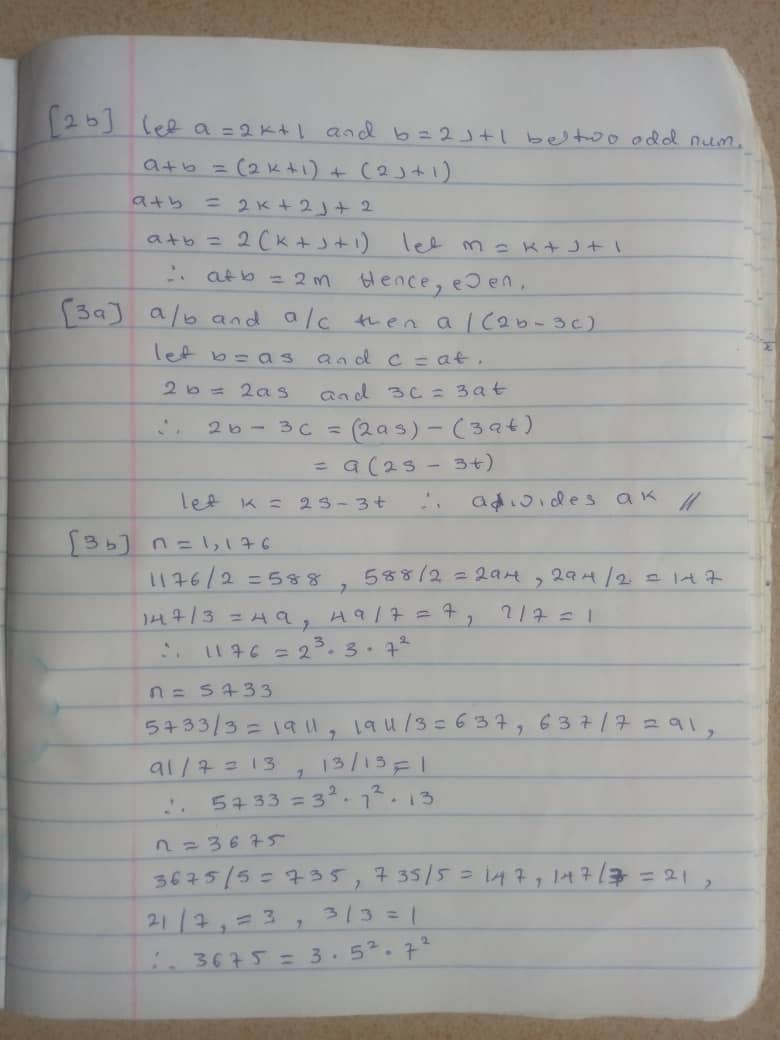 [2b] let a = 2k+1 and b = 2J+1 be two odd num.
a+b = (2k+1) + (2J+1)
a+b = 2k + 2J + 2
a+b = 2(k+J+1) let m = k+J+1
∴ a+b = 2m Hence, even.
[3a] a/b and a/c then a/(2b-3c)
let b = as and c = at.
2b = 2as and 3c = 3at
∴ 2b - 3c = (2as) - (3at)
= a(2s - 3t)
let k = 2s-3t ∴ a divides ak //
[3b] n = 1,176
1176/2 = 588, 588/2 = 294, 294/2 = 147
147/3 = 49, 49/7 = 7, 7/7 = 1
∴ 1176 = 2³·3·7²
n = 5733
5733/3 = 1911, 1911/3 = 637, 637/7 = 91,
91/7 = 13, 13/13 = 1
∴ 5733 = 3²·7²·13
n = 3675
3675/5 = 735, 735/5 = 147, 147/7 = 21,
21/7, = 3, 3/3 = 1
∴ 3675 = 3·5²·7²